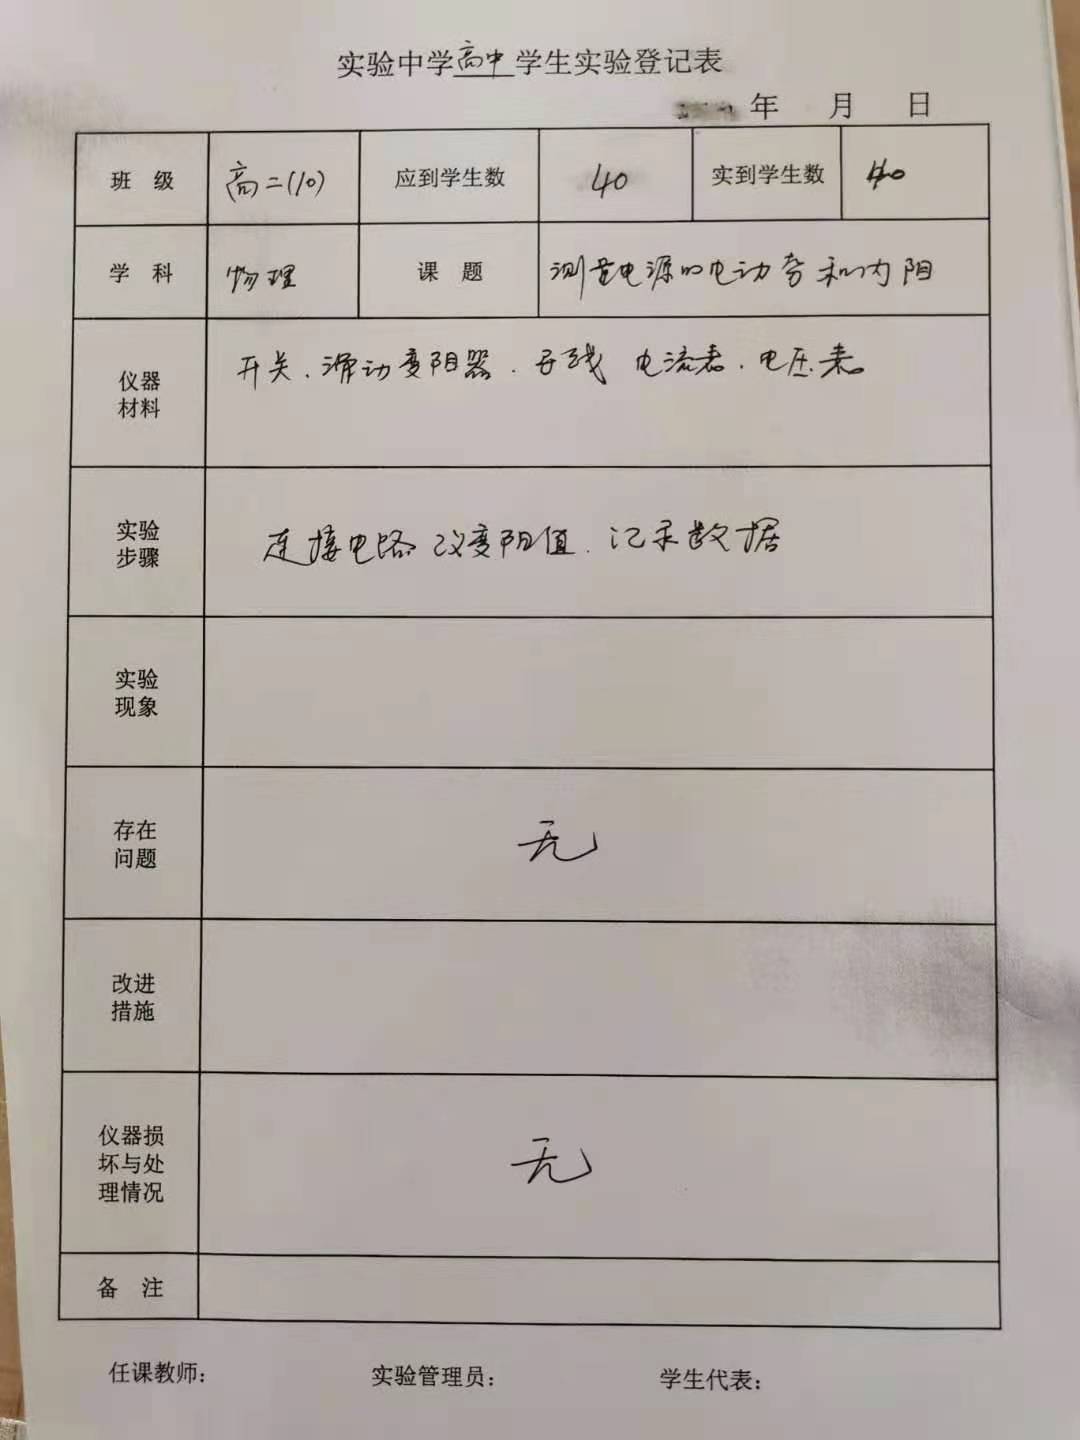 实验中学高中学生实验登记表
年 月 日
班 级 高二(10) 应到学生数 40 实到学生数 40
学 科 物理 课 题 测量电源的电动势和内阻
仪器
材料
开关、滑动变阻器、导线 电流表、电压表。
实验
步骤
连接电路 改变阻值、记录数据
实验
现象
存在
问题
无
改进
措施
仪器损
坏与处
理情况
无
备 注
任课教师: 实验管理员: 学生代表: